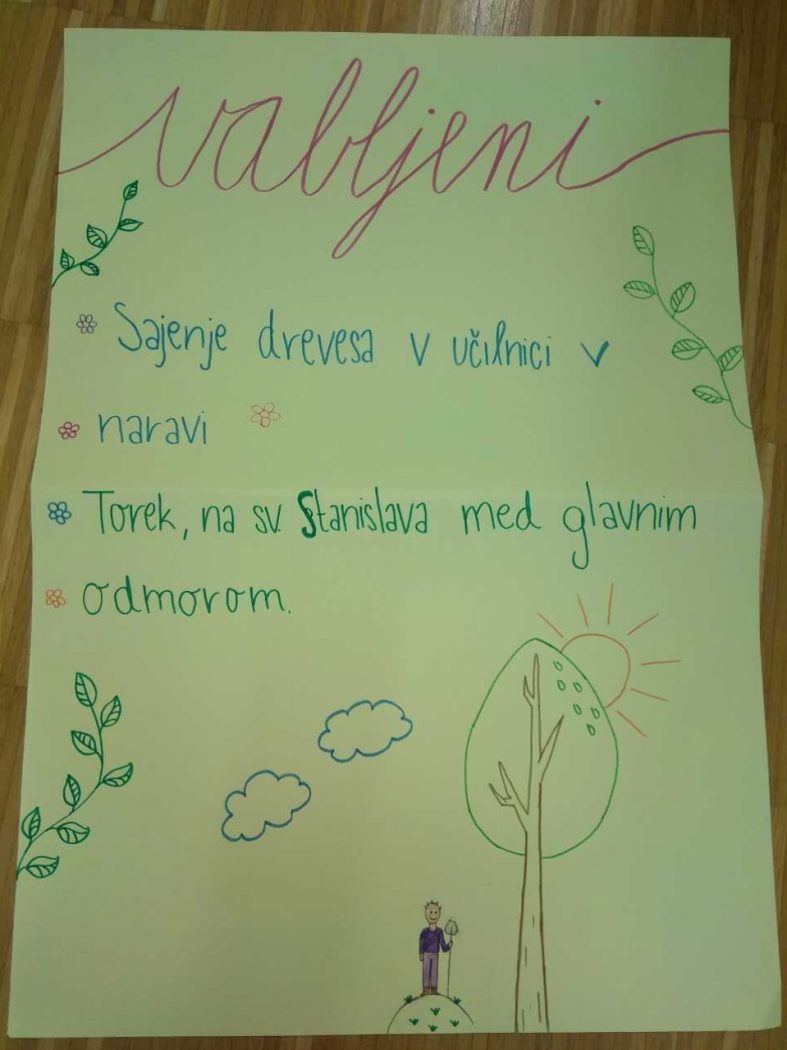 vabljeni
Sajenje drevesa v učilnici v
naravi
Torek, na sv. Stanislava med glavnim
odmorom.